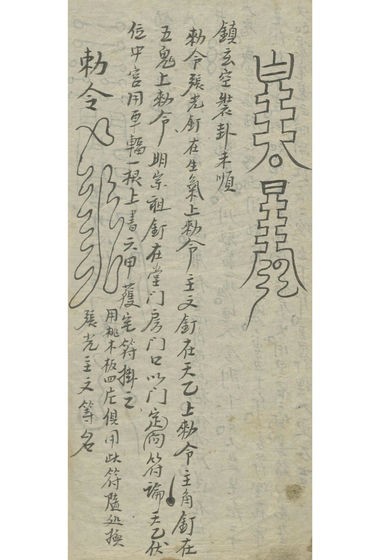 鎮玄空裝卦未順
勅令張光釘在生氣上勅令主文釘在天乙上勅令主角釘在
五鬼上勅令明宗祖釘在堂门房门口以门定向符論天乙伏
位中宮用車輻一根上書六甲護宅符掛之
用桃木板四片俱用此符隨処換
張光主文等名
勅令